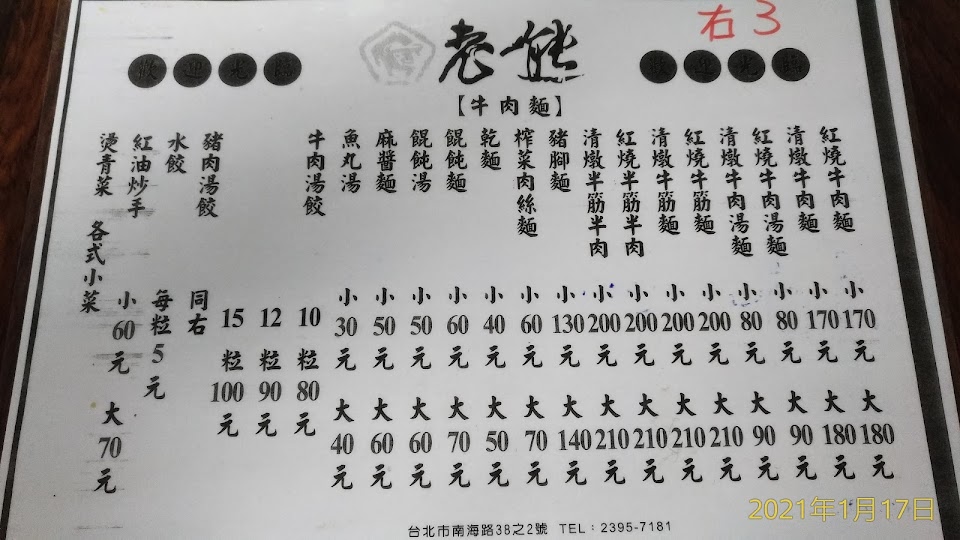 右3
歡迎光臨
老熊
歡迎光臨
【牛肉麵】
紅燒牛肉麵 小170元 大180元
清燉牛肉麵 小170元 大180元
紅燒牛肉湯麵 小80元 大90元
清燉牛肉湯麵 小80元 大90元
紅燒牛筋麵 小200元 大210元
清燉牛筋麵 小200元 大210元
紅燒半筋半肉 小200元 大210元
清燉半筋半肉 小200元 大210元
豬腳麵 小130元 大140元
榨菜肉絲麵 小60元 大70元
乾麵 小40元 大50元
餛飩麵 小60元 大70元
餛飩湯 小50元 大60元
麻醬麵 小50元 大60元
魚丸湯 小30元 大40元
牛肉湯餃 10粒80元
12粒90元
15粒100元
豬肉湯餃 同右
水餃 每粒5元
紅油炒手 小60元 大70元
燙青菜 各式小菜
台北市南海路38之2號 TEL：2395-7181
2021年1月17日